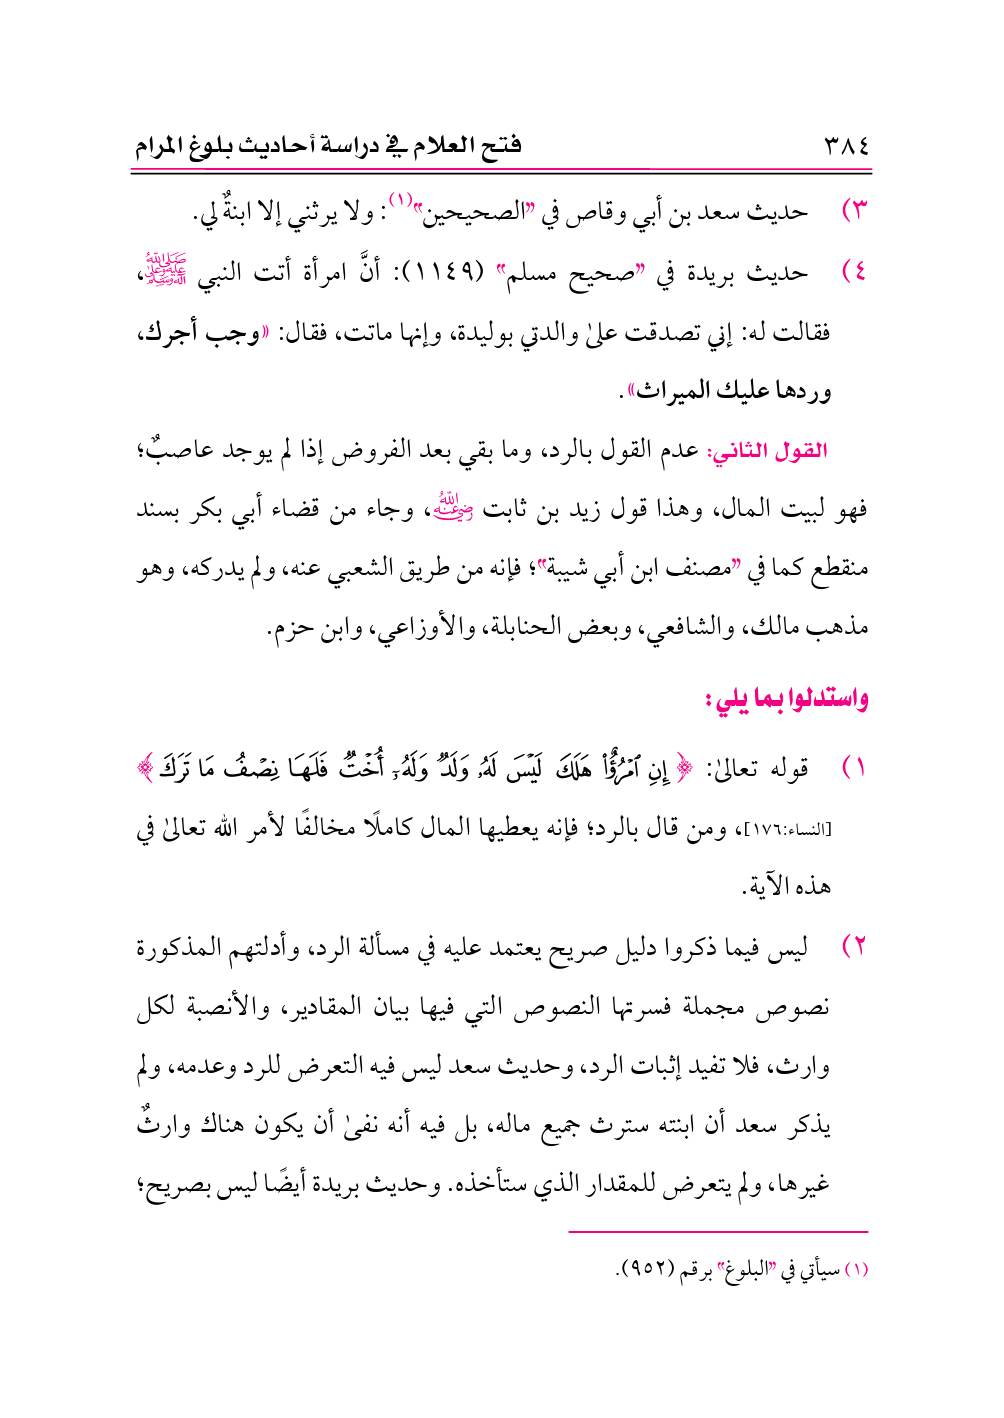 ٣٨٤ فتح العلام في دراسة أحاديث بلوغ المرام
٣) حديث سعد بن أبي وقاص في "الصحيحين"(١): ولا يرثني إلا ابنةٌ لي.
٤) حديث بريدة في "صحيح مسلم" (١١٤٩): أنَّ امرأة أتت النبي ﷺ،
فقالت له: إني تصدقت علىٰ والدتي بوليدة، وإنها ماتت، فقال: «وجب أجرك،
وردها عليك الميراث».
القول الثاني: عدم القول بالرد، وما بقي بعد الفروض إذا لم يوجد عاصبٌ؛
فهو لبيت المال، وهذا قول زيد بن ثابت رضي الله عنه، وجاء من قضاء أبي بكر بسند
منقطع كما في "مصنف ابن أبي شيبة"؛ فإنه من طريق الشعبي عنه، ولم يدركه، وهو
مذهب مالك، والشافعي، وبعض الحنابلة، والأوزاعي، وابن حزم.
واستدلوا بما يلي:
١) قوله تعالىٰ: ﴿إِنِ ٱمۡرُؤٌاْ هَلَكَ لَيۡسَ لَهُۥ وَلَدٌ وَلَهُۥٓ أُخۡتٌ فَلَهَا نِصۡفُ مَا تَرَكَ﴾
[النساء:١٧٦]، ومن قال بالرد؛ فإنه يعطيها المال كاملًا مخالفًا لأمر الله تعالىٰ في
هذه الآية.
٢) ليس فيما ذكروا دليل صريح يعتمد عليه في مسألة الرد، وأدلتهم المذكورة
نصوص مجملة فسرتها النصوص التي فيها بيان المقادير، والأنصبة لكل
وارث، فلا تفيد إثبات الرد، وحديث سعد ليس فيه التعرض للرد وعدمه، ولم
يذكر سعد أن ابنته سترث جميع ماله، بل فيه أنه نفىٰ أن يكون هناك وارثٌ
غيرها، ولم يتعرض للمقدار الذي ستأخذه. وحديث بريدة أيضًا ليس بصريح؛
(١) سيأتي في "البلوغ" برقم (٩٥٢).